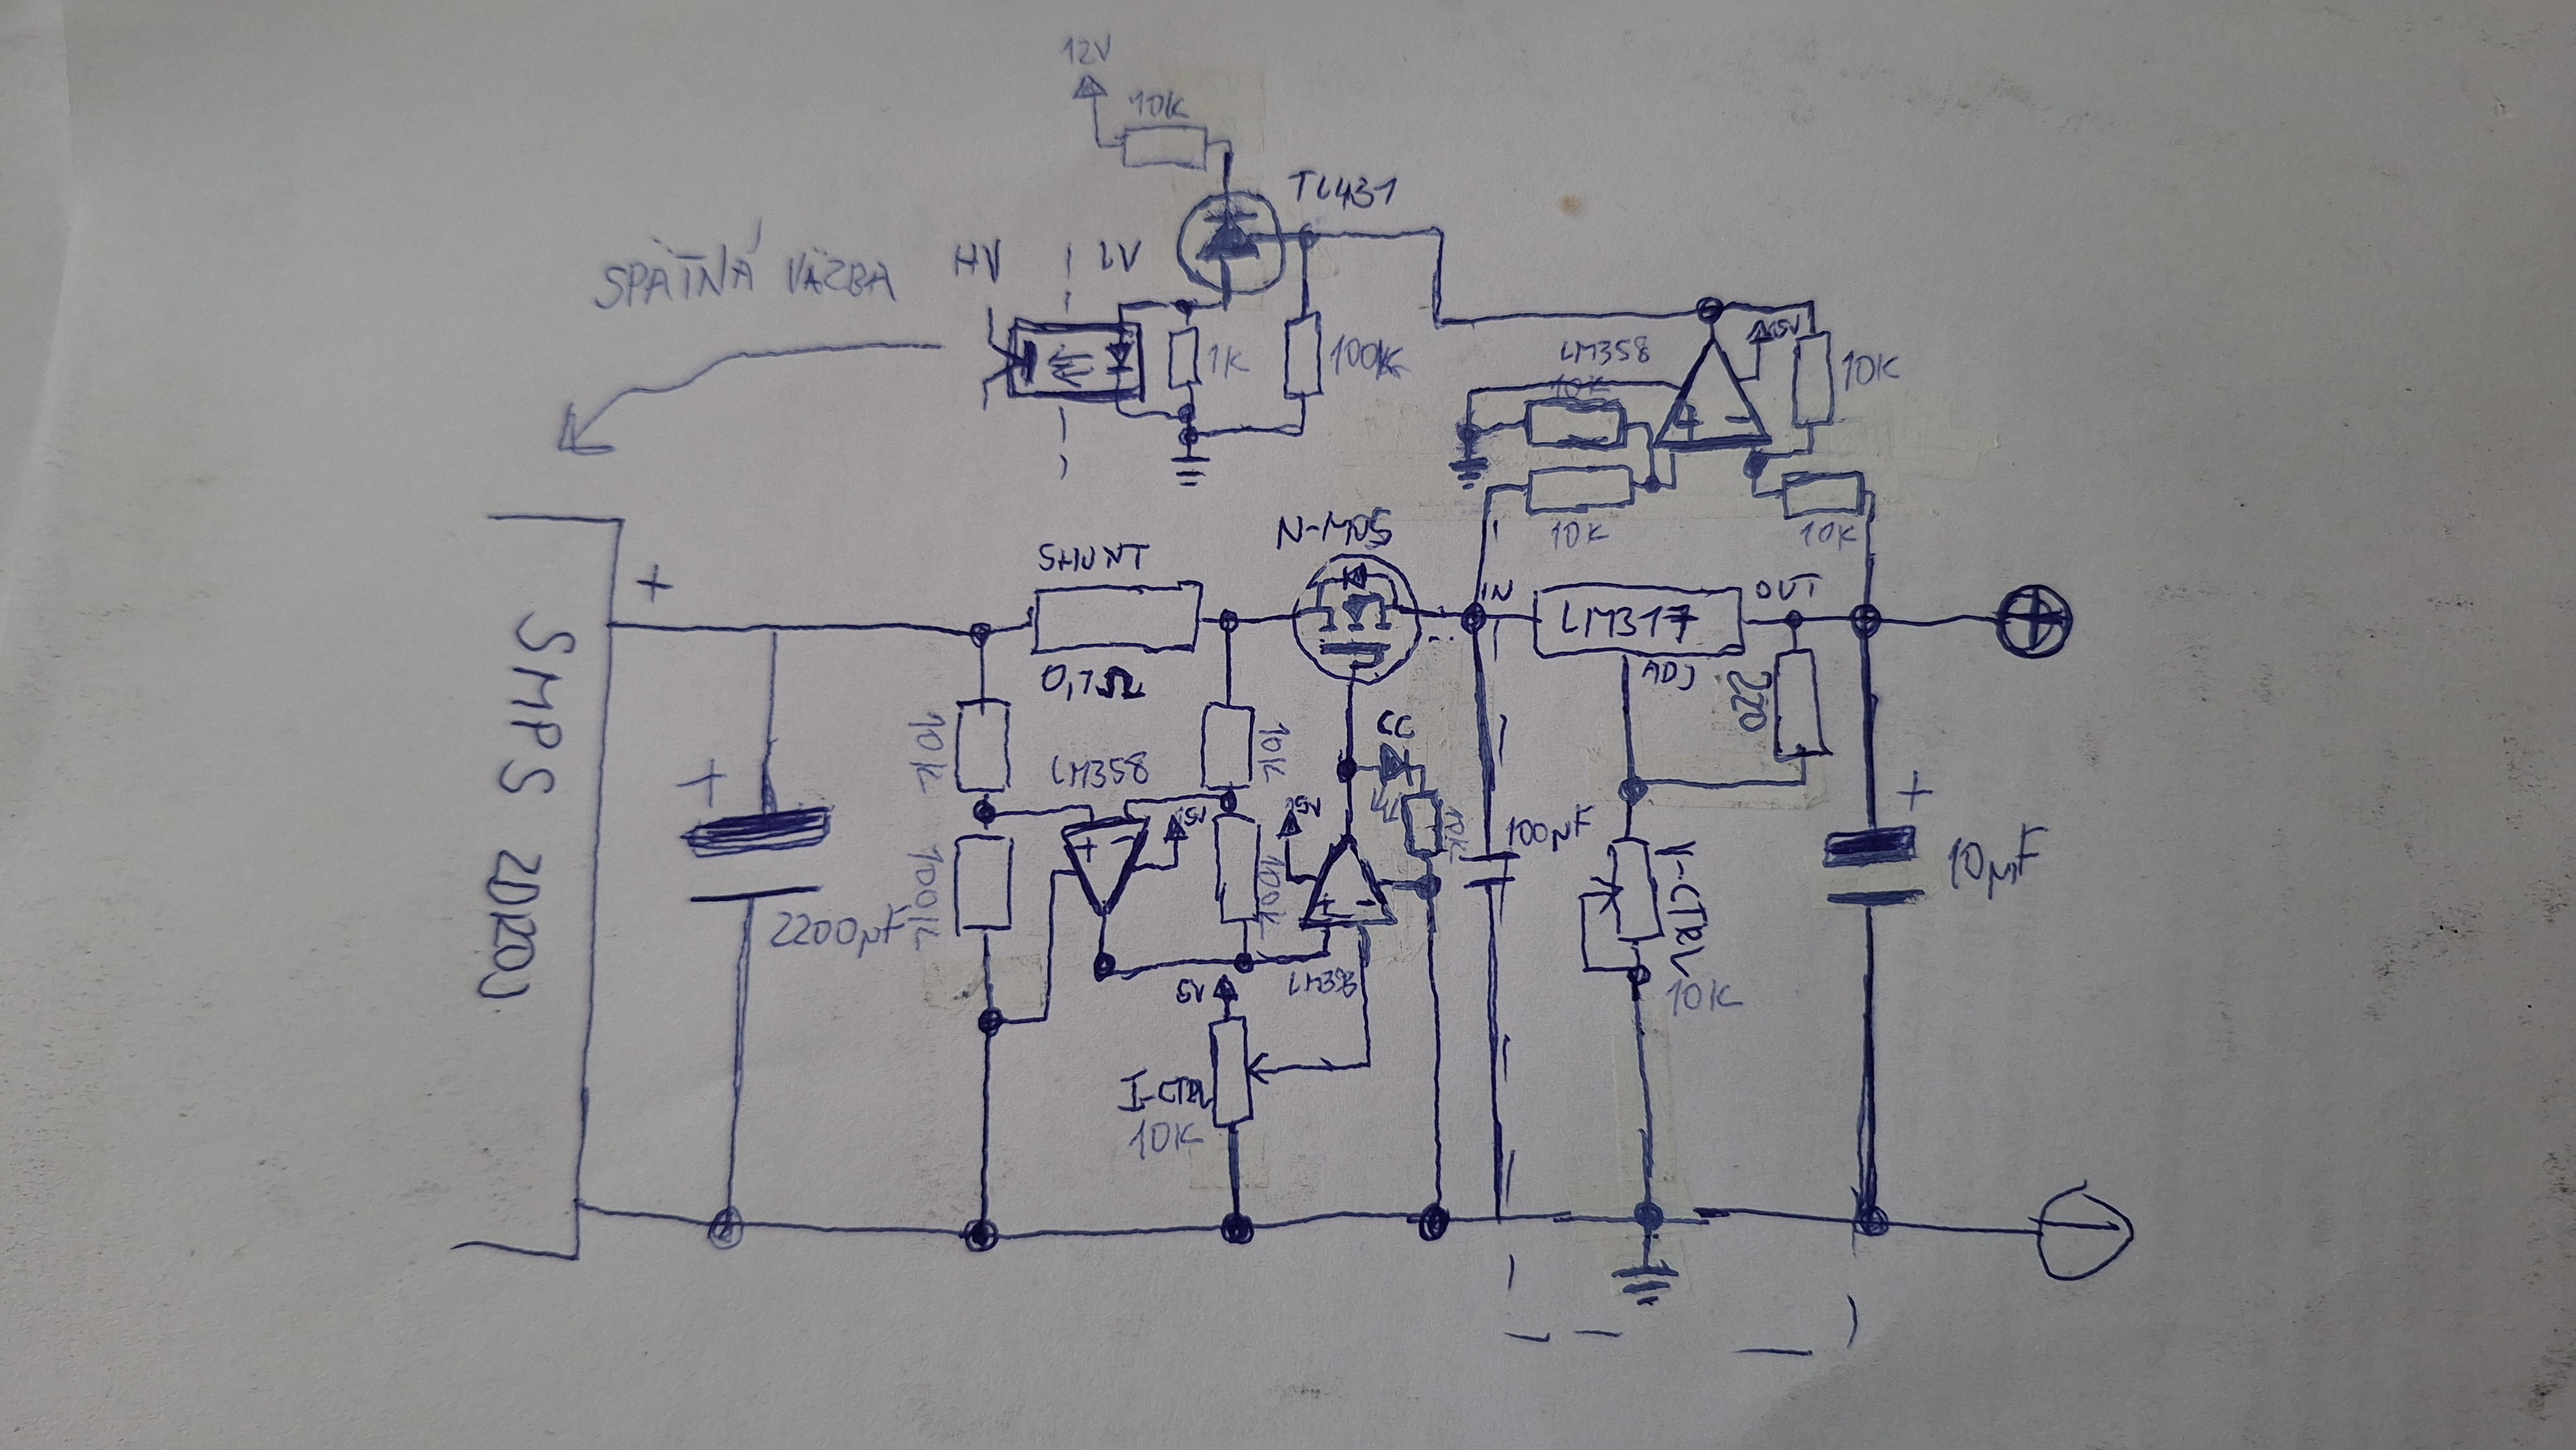 12V
10K
TL431
HV
LV
SPÄTNÁ VÄZBA
1K
100K
LM358
10K
15V
10K
+ -
10K
10K
N-MOS
SHUNT
+
IN
OUT
LM317
0,1Ω
ADJ
220
SMPS ZDROJ
10K
10K
CC
LM358
+
+ -
15V
15V
10K
100nF
+
10µF
2200µF
100K
100K
+ -
V-CTRL
5V
LM358
10K
I-CTRL
10K